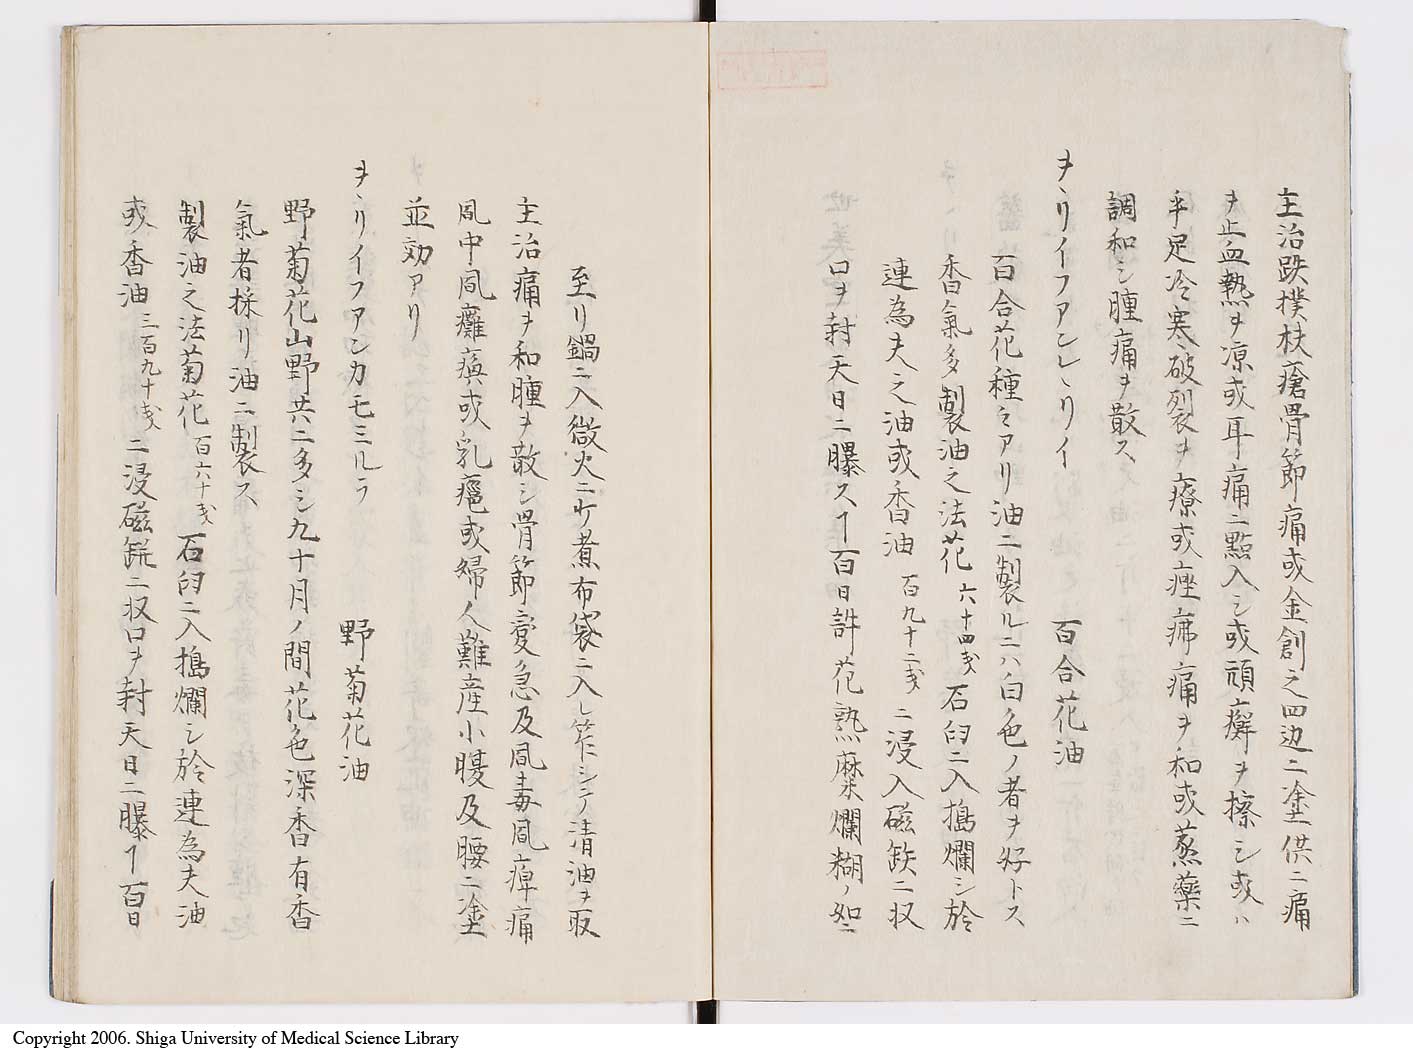 主治跌撲杖瘡骨節痛或金創之四辺ニ塗供ニ痛
ヲ止血熱ヲ凉或耳痛ニ點入シ或頑癬ヲ擦シ或ハ
手足冷寒破裂ヲ療或痙疿痛ヲ和或蒸藥ニ
調和シ腫痛ヲ散ス
ヲヽリイフアンレヽリイ 百合花油
百合花種〻アリ油ニ製ルニハ白色ノ者ヲ好トス
香氣多製油之法花六十四戔石臼ニ入搗爛シ於
連為夫之油或香油百九十二戔ニ浸入磁鈇ニ収
口ヲ封天日ニ曝スヿ百日許花熟糜爛糊ノ如ニ
至リ鍋ニ入微火ニケ煮布袋ニ入レ笮シテ清油ヲ取
主治痛ヲ和腫ヲ散シ骨節䜌急及風毒風痺痛
風中風癱瘓或乳癰或婦人難産小腹及腰ニ塗
並効アリ
ヲヽリイフアンカモミルラ 野菊花油
野菊花山野共ニ多シ九十月ノ間花色深香有香
氣者採リ油ニ製ス
製油之法菊花百六十戔石臼ニ入搗爛シ於連為夫油
或香油三百九十戔ニ浸磁缾ニ収口ヲ封天日ニ曝ヿ百日
Copyright 2006. Shiga University of Medical Science Library